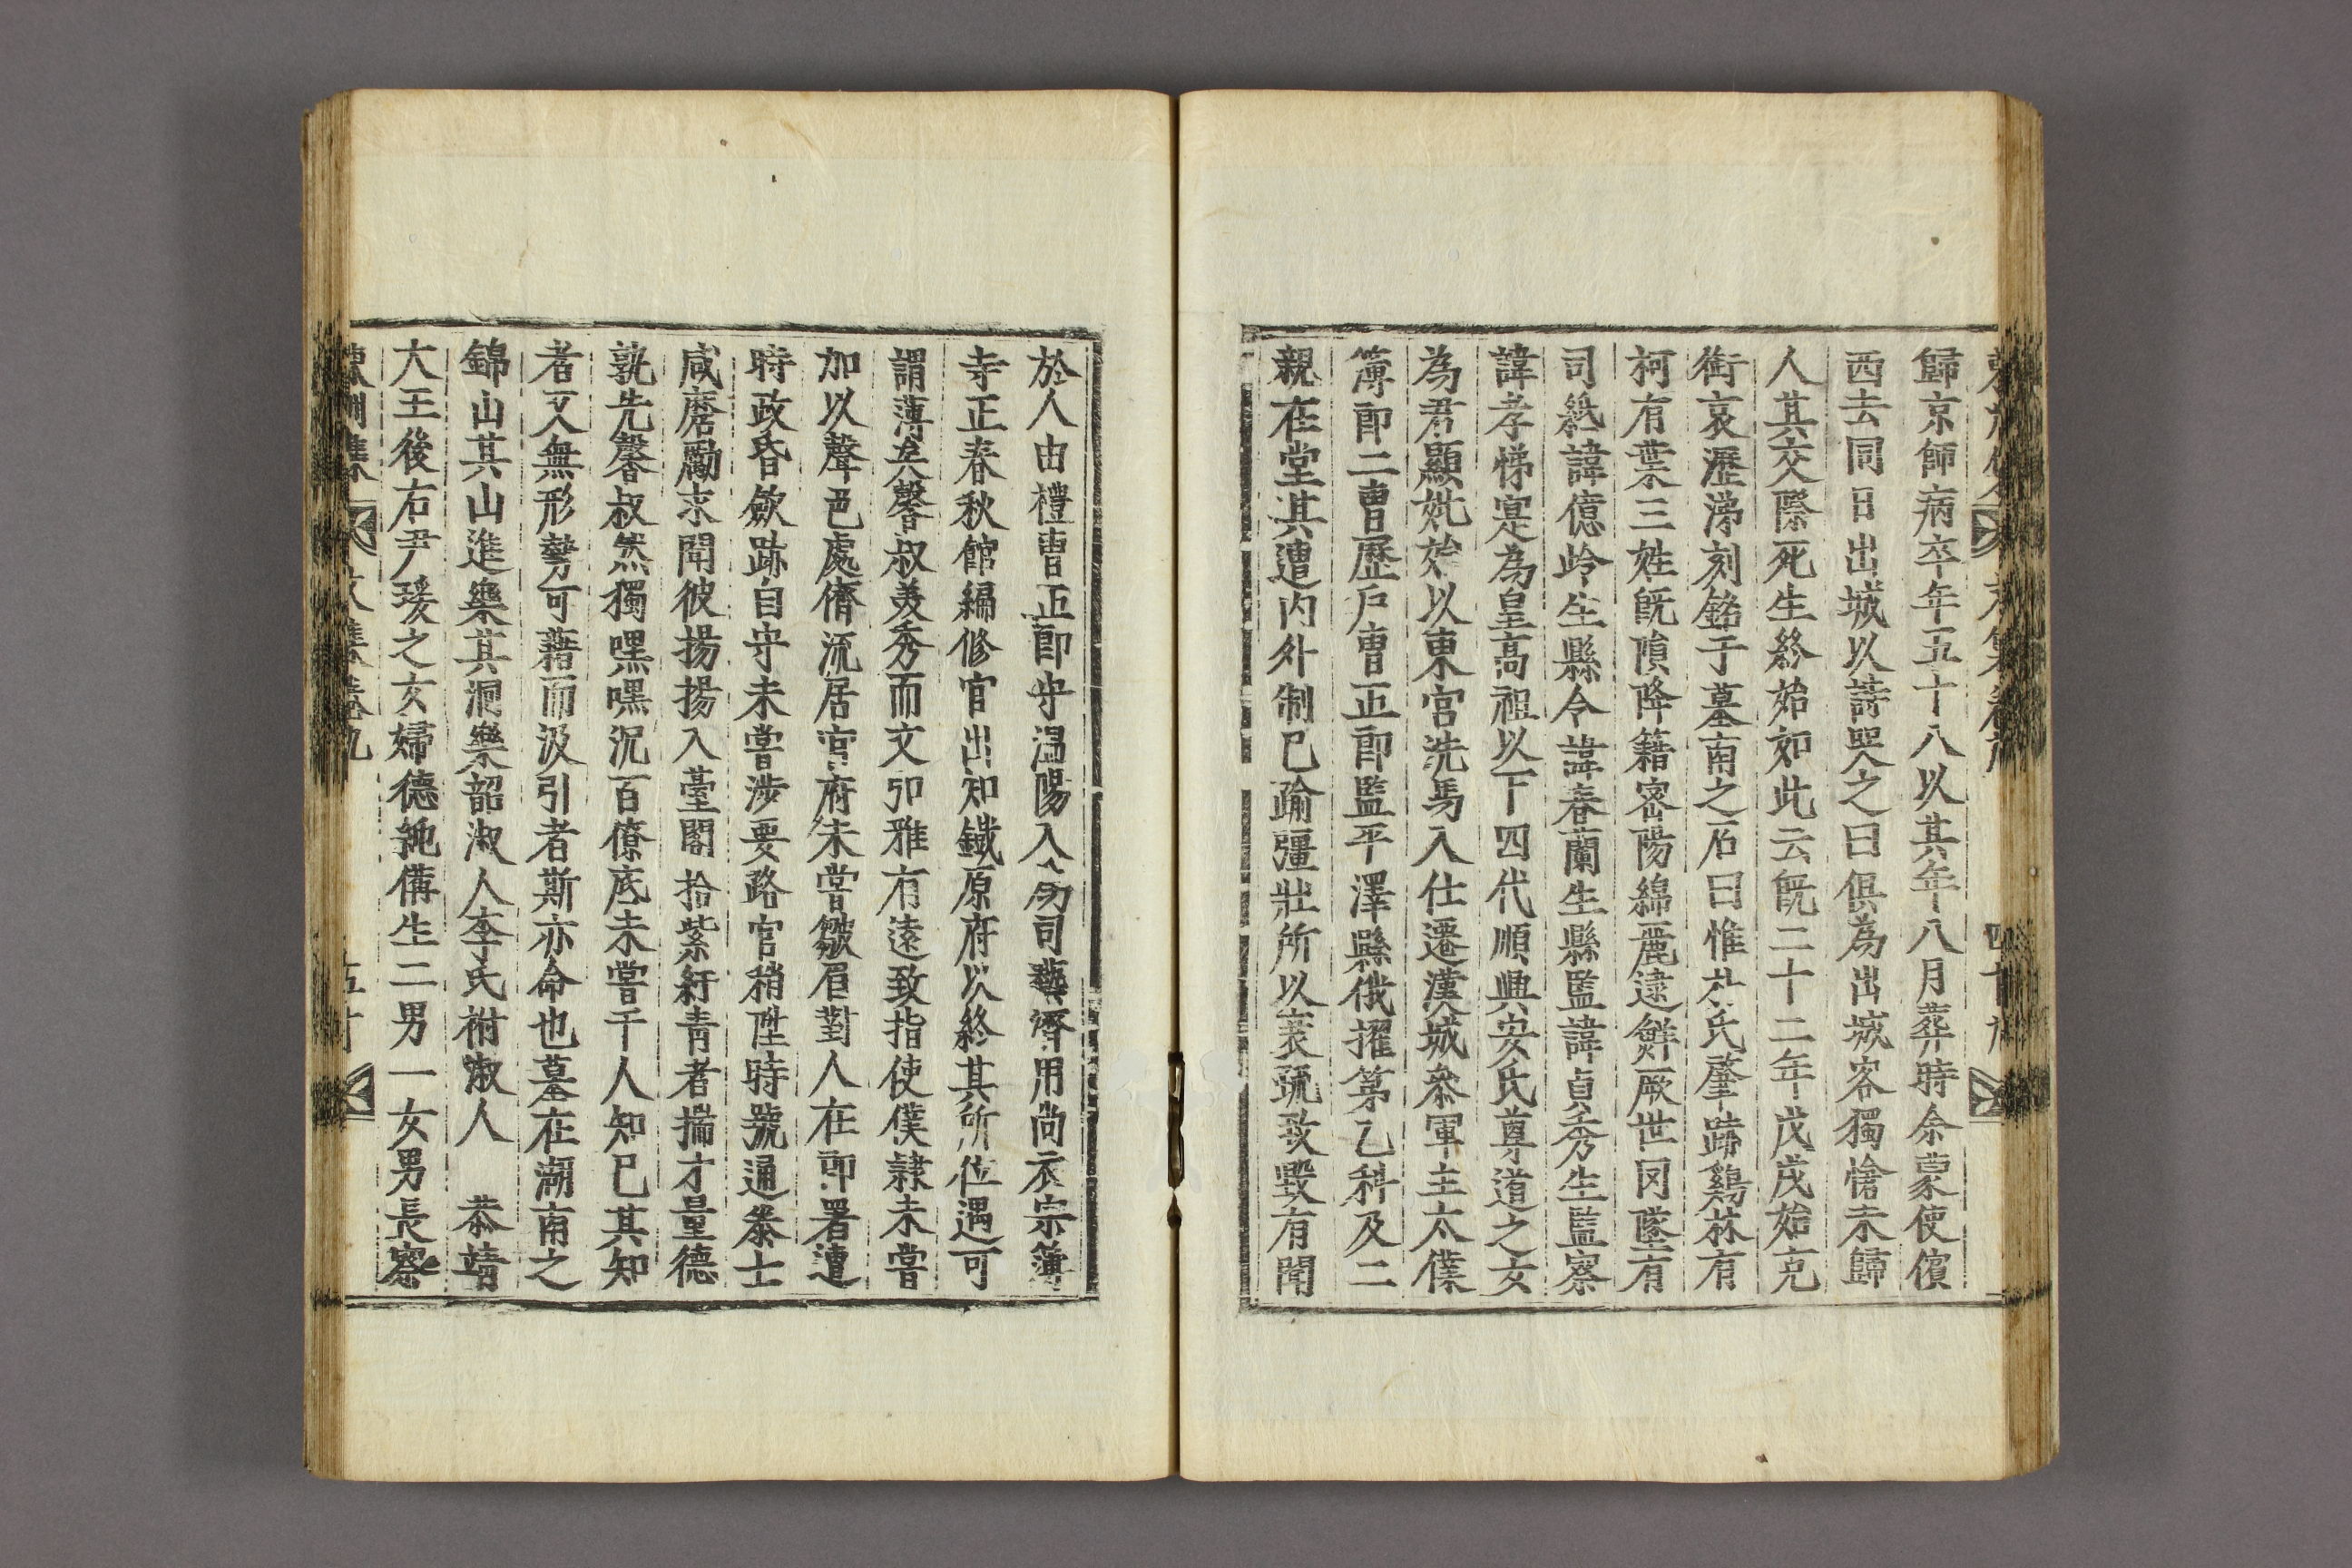 歸京師病卒年五十八以其年八月葬時余蒙使儐
西去同日出城以詩哭之曰俱為出城客獨愴未歸
人其交際死生終始如此云旣二十二年戊戌始克
銜哀瀝涕刻銘于墓南之石曰惟朴氏肇蹟鷄林有
柯有葉三姓旣隕降籍密陽綿麗逮鮮厥世罔墜有
司紙諱億岭生縣令諱春蘭生縣監諱貞秀生監察
諱孝悌寔為皇高祖以下四代順興安氏尊道之女
為君顯妣於以東宮洗馬入仕遷漢城參軍主太僕
簿郎二曹歷戶曹正郎監平澤縣俄擢第乙科及二
親在堂其遭內外制已踰彊壯所以衰毀致毀有聞
於人由禮曹正郎守溫陽入內司藥濟用尚衣宗簿
寺正春秋館編修官出知鐵原府以終其所位遇可
謂薄矣馨叔美秀而文卯雅有遠致指使僕隷未嘗
加以聲色處儕流居官府未嘗皺眉對人在郎署遭
時政昏斂跡自守未嘗涉要路官稍陞時號通叅士
咸磨勵求聞彼揚揚入臺閣拾紫紆青者揣才量德
孰先馨叔然獨嘿嘿沉百僚底未嘗干人知已其知
者又無形勢可藉而汲引者斯亦命也墓在湖南之
錦山其山進樂其洞樂韶淑人李氏祔淑人　恭靖
大王後右尹瑗之女婦德純備生二男一女男長察
東州集　文集卷九　五十